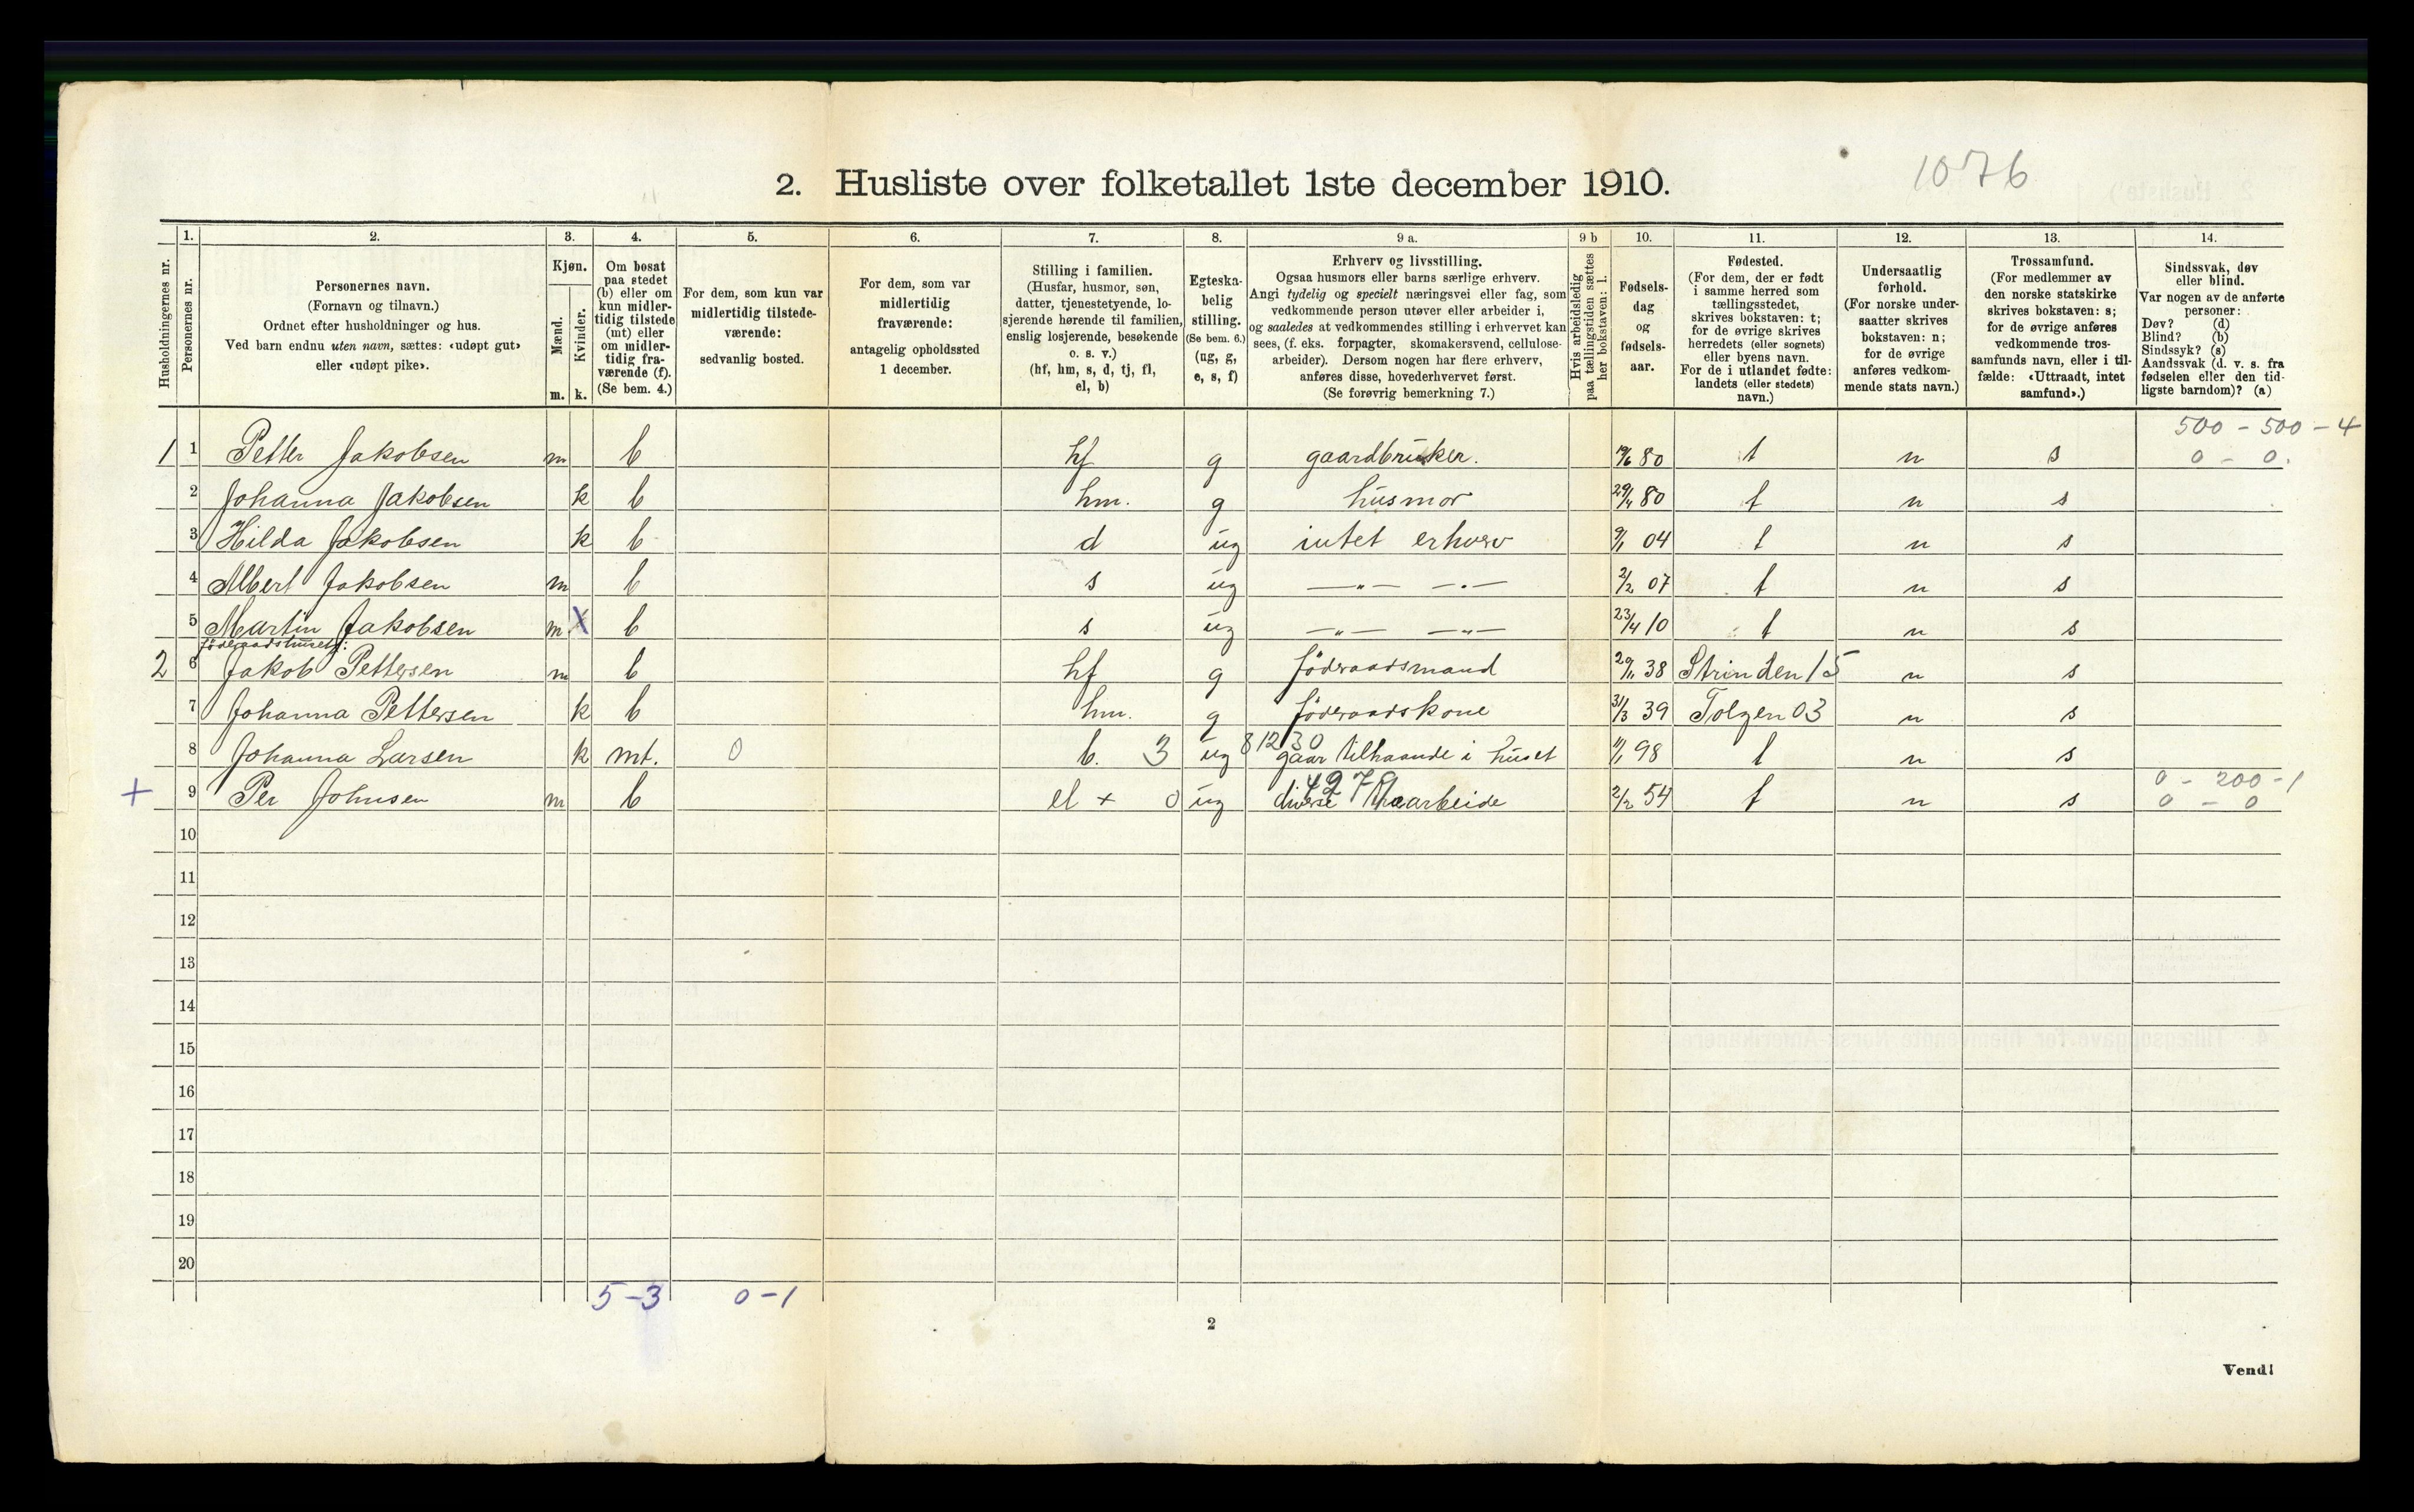 2. Husliste over folketallet 1ste december 1910.
1076
Husholdningernes nr.
1. Personernes nr.
2. Personernes navn.
(Fornavn og tilnavn.)
Ordnet efter husholdninger og hus.
Ved barn endnu uten navn, sættes: «udøpt gut»
eller «udøpt pike».
3. Kjøn.
Mænd. m.
Kvinder. k.
4. Om bosat
paa stedet
(b) eller om
kun midler-
tidig tilstede
(mt) eller
om midler-
tidig fra-
værende (f).
(Se bem. 4.)
5. For dem, som kun var
midlertidig tilstede-
værende:
sedvanlig bosted.
6. For dem, som var
midlertidig
fraværende:
antagelig opholdssted
1 december.
7. Stilling i familien.
(Husfar, husmor, søn,
datter, tjenestetyende, lo-
sjerende hørende til familien,
enslig losjerende, besøkende
o. s. v.)
(hf, hm, s, d, tj, fl,
el, b)
8. Egteska-
belig
stilling.
(Se bem. 6.)
(ug, g,
e, s, f)
9 a. Erhverv og livsstilling.
Ogsaa husmors eller barns særlige erhverv.
Angi tydelig og specielt næringsvei eller fag, som
vedkommende person utøver eller arbeider i,
og saaledes at vedkommendes stilling i erhvervet kan
sees, (f. eks. forpagter, skomakersvend, cellulose-
arbeider). Dersom nogen har flere erhverv,
anføres disse, hovederhvervet først.
(Se forøvrig bemerkning 7.)
9 b Hvis arbeidsledig
paa tællingstiden sættes
her bokstaven: l.
10. Fødsels-
dag
og
fødsels-
aar.
11. Fødested.
(For dem, der er født
i samme herred som
tællingsstedet,
skrives bokstaven: t;
for de øvrige skrives
herredets (eller sognets)
eller byens navn.
For de i utlandet fødte:
landets (eller stedets)
navn.)
12. Undersaatlig
forhold.
(For norske under-
saatter skrives
bokstaven: n;
for de øvrige
anføres vedkom-
mende stats navn.)
13. Trossamfund.
(For medlemmer av
den norske statskirke
skrives bokstaven: s;
for de øvrige anføres
vedkommende tros-
samfunds navn, eller i til-
fælde: «Uttraadt, intet
samfund».)
14. Sindssvak, døv
eller blind.
Var nogen av de anførte
personer:
Døv? (d)
Blind? (b)
Sindssyk? (s)
Aandssvak (d. v. s. fra
fødselen eller den tid-
ligste barndom)? (a)
500 - 500 - 4
1 1 Petter Jakobsen m b hf g gaardbruker. 80 t n s 0 - 0.
2 Johanna Jakobsen k b hm. g husmor 29/4 80 t n s
3 Hilda Jakobsen k b d ug intet erhverv 9/1 04 t n s
4 Albert Jakobsen m b s ug —„— —„— 2/2 07 t n s
5 Martin Jakobsen m X b s ug —„— —„— 23/4 10 t n s
föderaadshuset:
2 6 Jakob Pettersen m b hf g föderaadsmand 29/11 38 Strinden 15 n s
7 Johanna Pettersen k b hm. g föderaadskone 31/3 39 Tolgen 03 n s
8 12 30
8 Johanna Larsen k mt. 0 b. 3 ug gaar tilhaande i huset 98 t n s
0 - 200 - 1
+ 9 Per Johnsen m b el + 0 ug diverse 2/2 54 t n s 0 - 0
10
11
12
13
14
15
16
17
18
19
20
5 - 3 0 - 1
2
Vend!